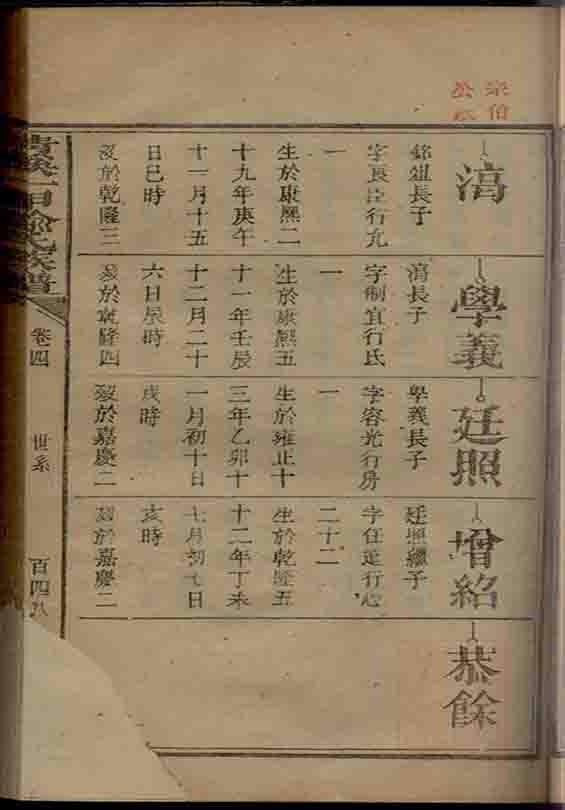 宗伯
公
滈
長子
字長臣行九
一
生於康熙二
十九年庚午
十一月十五
日巳時
歿於乾隆三
學義
滈長子
字制宜行氏
一
生於康熙五
十一年壬辰
十二月二十
六日辰時
歿於乾隆四
廷照
學義長子
字容光行房
一
生於雍正十
三年乙卯十
一月初十日
戌時
歿於嘉慶二
增紹
廷照繼子
字任行心
二十二
生於乾隆五
十二年丁未
七月初七日
亥時
歿於嘉慶二
恭餘
溪一氏族譜
卷四
世系
百四